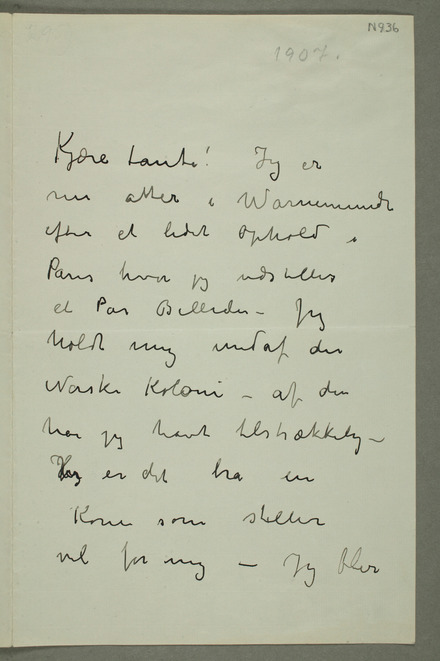 N 936
1907.
Kjære tante! Jeg er
nu atter i Warnemünde
efter et lidet Ophold i
Paris hvor jeg udstiller
et Par Billeder – Jeg
holdt mig undaf den
norske Koloni – af den
har jeg havt tilstrækkelig –
Her er det bra en
Kone som steller
vel for mig – Jeg blir